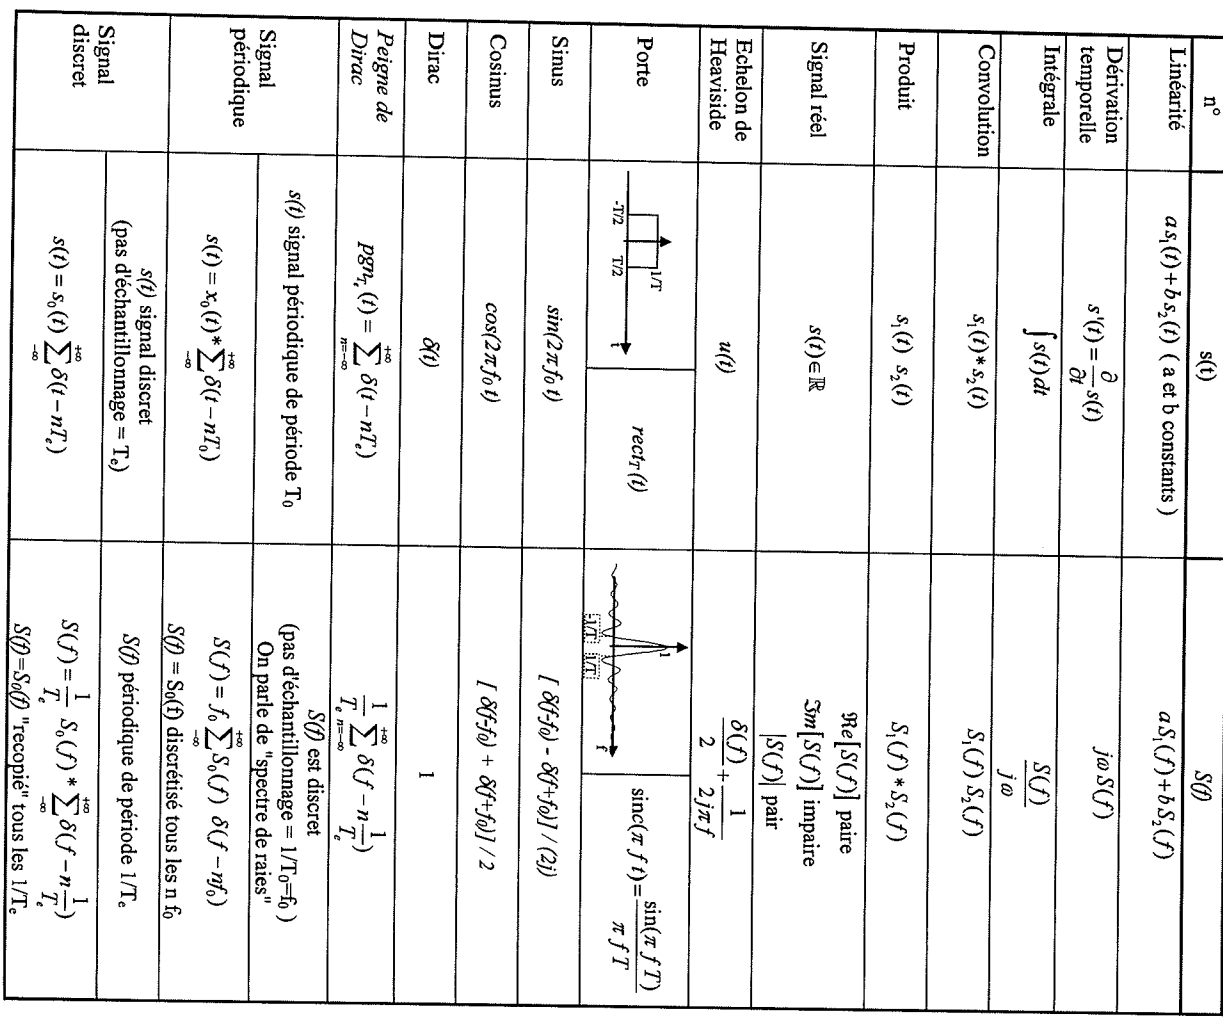 n° s(t) S(f)
Linéarité a s₁(t)+b s₂(t) ( a et b constants ) a S₁(f)+b S₂(f)
Dérivation
temporelle
s'(t) = ∂/∂t s(t) jω S(f)
Intégrale ∫ s(t) dt S(f)/jω
Convolution s₁(t) * s₂(t) S₁(f) S₂(f)
Produit s₁(t) s₂(t) S₁(f) * S₂(f)
Signal réel s(t)∈ℝ
ℜe[S(f)] paire
ℑm[S(f)] impaire
|S(f)| pair
Echelon de
Heaviside
u(t) δ(f)/2 + 1/2jπf
Porte
1/T
-T/2 T/2 t
rect_T(t)
1
-1/T 1/T f
sinc(π f t) = sin(π f T)/π f T
Sinus sin(2πf₀ t) [ δ(f-f₀) - δ(f+f₀)] / (2j)
Cosinus cos(2πf₀ t) [ δ(f-f₀) + δ(f+f₀)] / 2
Dirac δ(t) 1
Peigne de
Dirac
pgn_Te(t) = ∑_{n=-∞}^{+∞} δ(t-nTₑ) 1/Tₑ ∑_{n=-∞}^{+∞} δ(f-n 1/Tₑ)
Signal
périodique
s(t) signal périodique de période T₀
S(f) est discret
(pas d'échantillonnage = 1/T₀=f₀ )
On parle de "spectre de raies"
s(t) = x₀(t) * ∑_{-∞}^{+∞} δ(t-nT₀)
S(f) = f₀ ∑_{-∞}^{+∞} S₀(f) δ(f-nf₀)
S(f) = S₀(f) discrétisé tous les n f₀
Signal
discret
s(t) signal discret
(pas d'échantillonnage = Tₑ)
S(f) périodique de période 1/Tₑ
s(t) = s₀(t) ∑_{-∞}^{+∞} δ(t-nTₑ)
S(f) = 1/Tₑ S₀(f) * ∑_{-∞}^{+∞} δ(f-n 1/Tₑ)
S(f)=S₀(f) "recopié" tous les 1/Tₑ